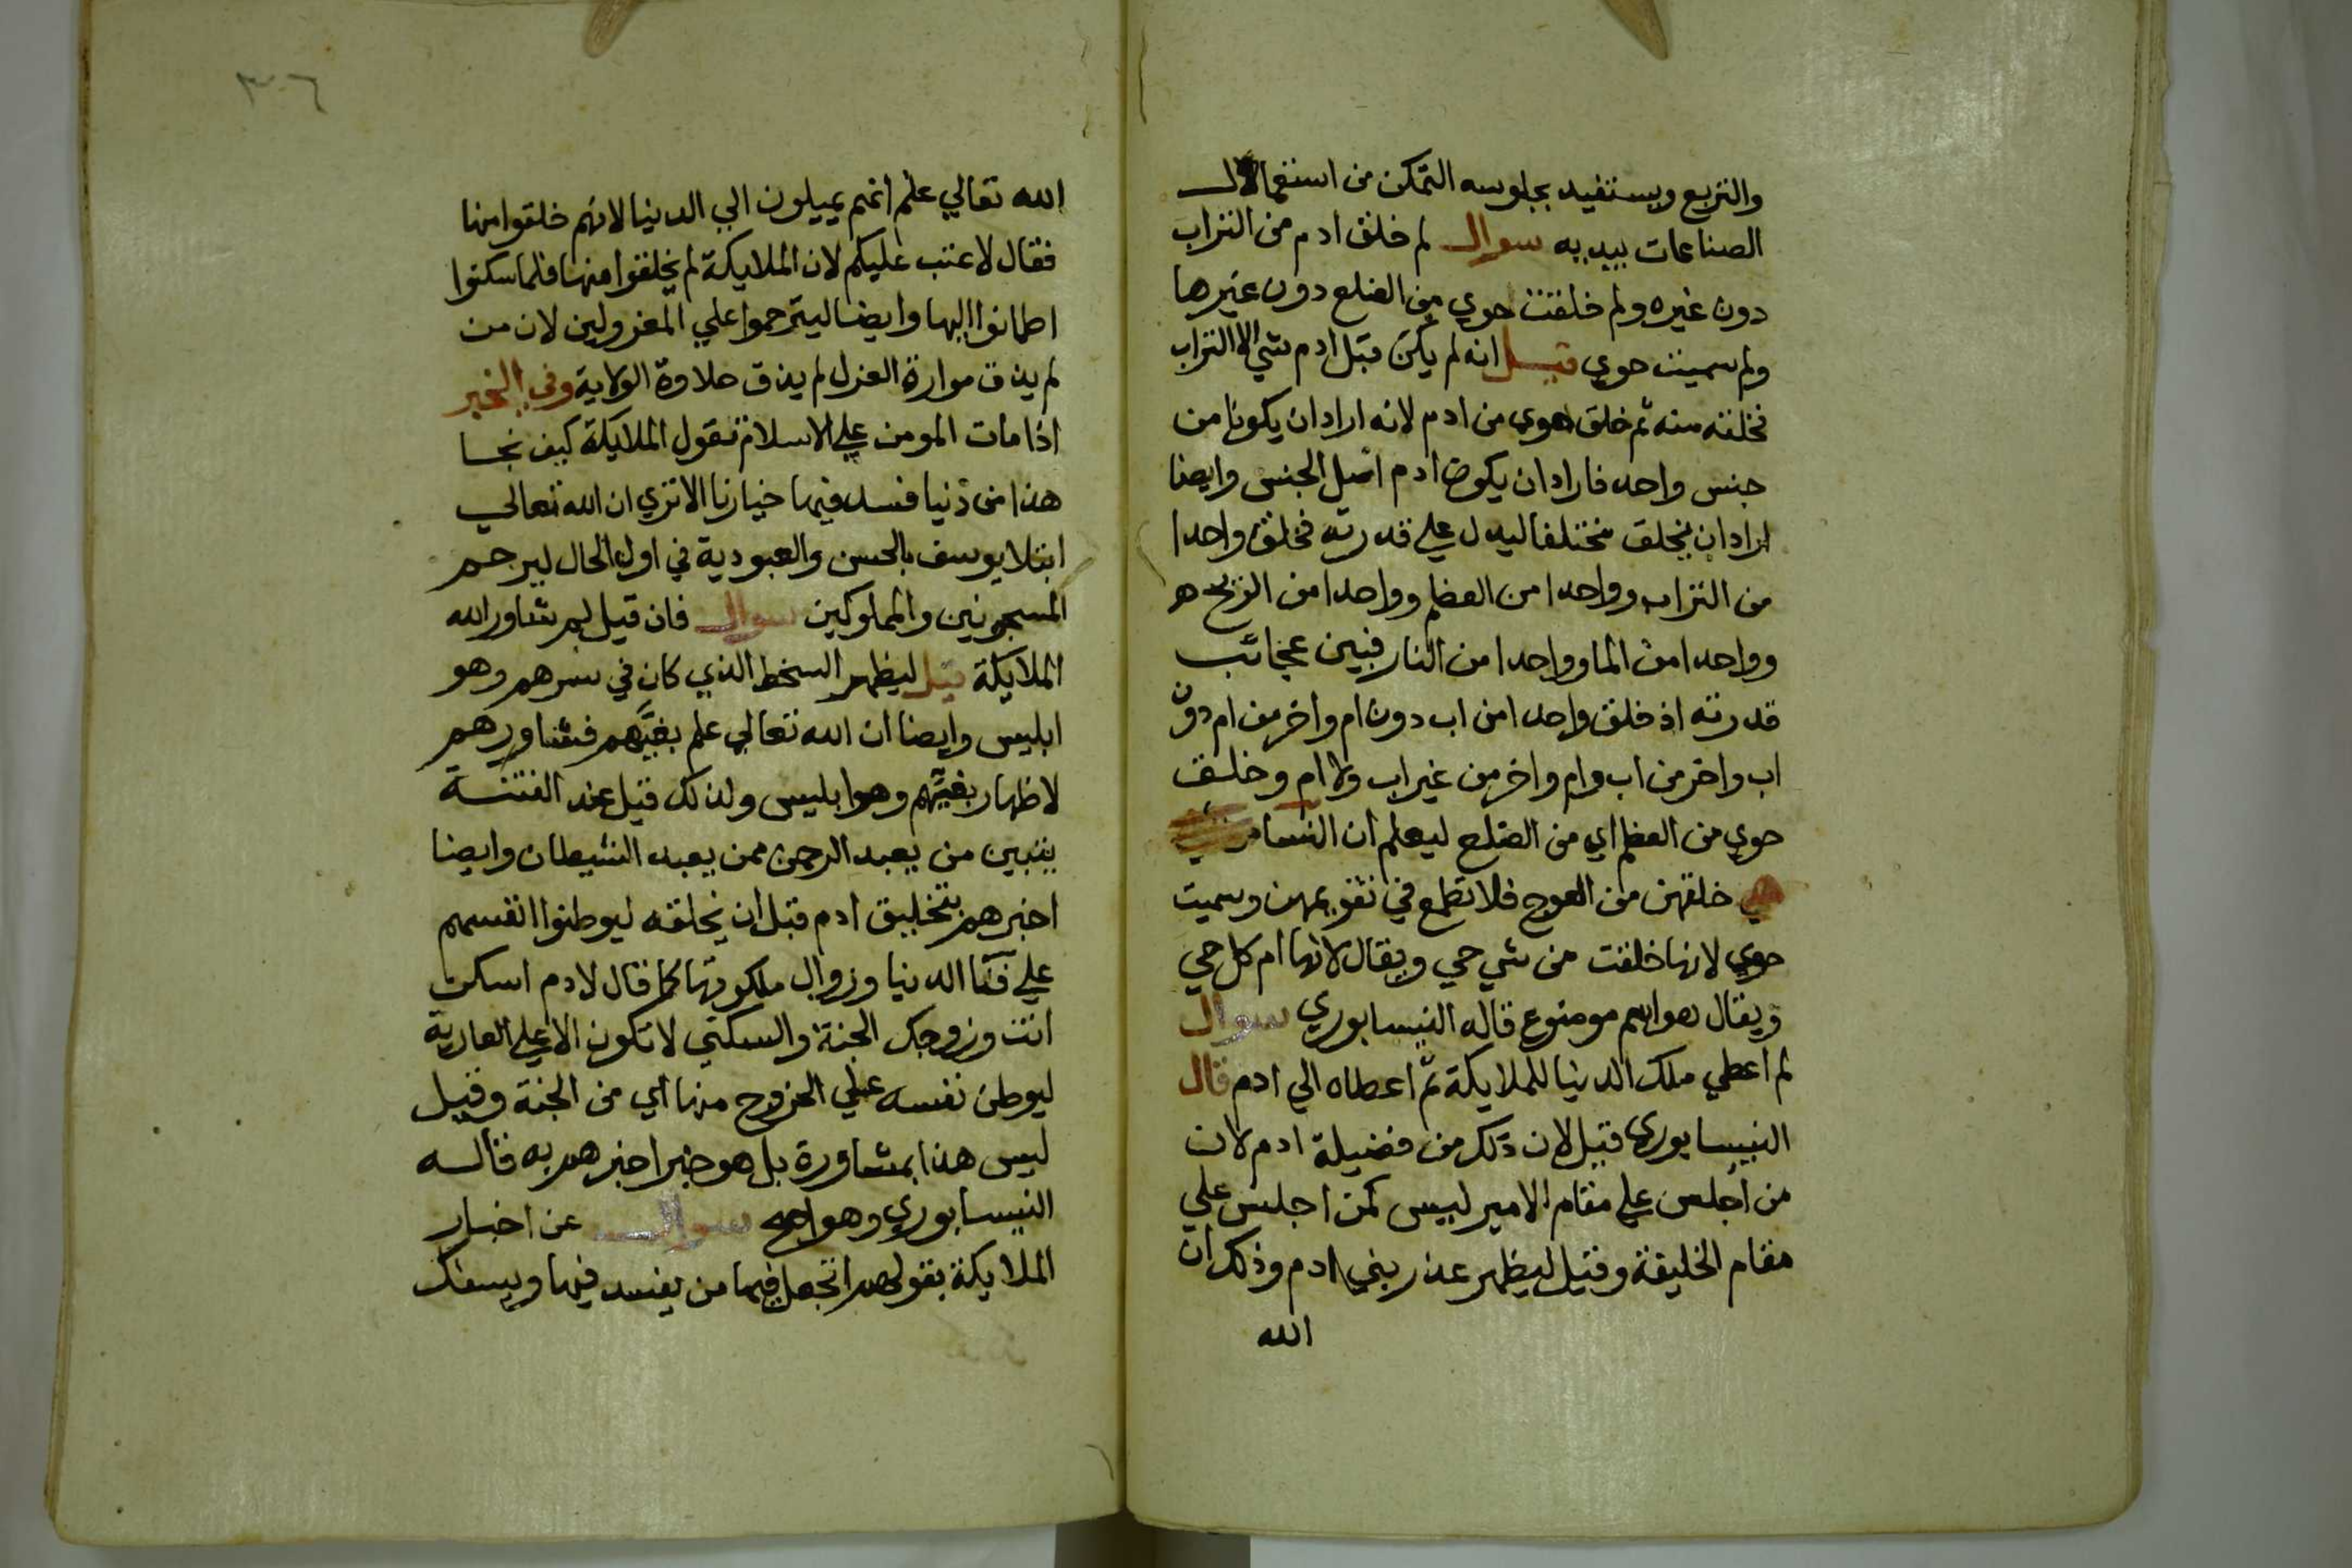 والتربع ويستفيد بجلوسه التمكن من استعمال
الصناعات بيديه سوال لم خلق ادم من التراب
دون غيره ولم خلقت حوي من الضلع دون غيرها
ولم سميت حوي قيل انه لم يكن قبل ادم شي الا التراب
فخلقه منه ثم خلق حوي من ادم لانه اراد ان يكونا من
جنس واحد فاراد ان يكون ادم اصل الجنس وايضا
اراد ان يخلق مختلفا ليدل علي قدرته فخلق واحدا
من التراب وواحدا من العظم وواحدا من الريح
وواحدا من الما وواحدا من النار فبين عجائب
قدرته اذ خلق واحدا من اب دون ام واخر من ام دون
اب واخر من اب وام واخر من غير اب ولا ام وخلق
حوي من العظم اي من الضلع ليعلم ان النسا
خلقهن من العوج فلا تطمع في تقويمهن وسميت
حوي لانها خلقت من شي حي ويقال لانها ام كل حي
ويقال هو اسم موضوع قاله النيسابوري سوال
لم اعطي ملك الدنيا للملايكة ثم اعطاه الي ادم قال
النيسابوري قيل لان ذلك من فضيلة ادم لان
من اجلس علي مقام الامير ليس كمن اجلس علي
مقام الخليفة وقيل ليظهر عذر بني ادم وذلك ان
الله
٣٠٦
الله تعالي علم انهم يميلون الي الدنيا لانهم خلقوا منها
فقال لا عتب عليكم لان الملايكة لم يخلقوا منها فلما سكنوا
اطمانوا اليها وايضا ليترحموا علي المعزولين لان من
لم يذق موارة العزل لم يذق حلاوة الولاية وفي الخبر
اذا مات المومن علي الاسلام تقول الملايكة كيف نجا
هذا من دنيا فسد فيها خيارنا الا تري ان الله تعالي
ابتلا يوسف بالحسن والعبودية في اول الحال ليرحم
المسجونين والمملوكين سوال فان قيل لم شاور الله
الملايكة قيل ليظهر السخط الذي كان في سرهم وهو
ابليس وايضا ان الله تعالي علم بغيهم فشاورهم
لاظهار بغيهم وهو ابليس ولذلك قيل عند الفتنة
يتبين من يعبد الرحمن ممن يعبد الشيطان وايضا
اخبرهم بتخليق ادم قبل ان يخلقه ليوطنوا انفسهم
علي فنا الدنيا وزوال ملكوتها كما قال لادم اسكن
انت وزوجك الجنة والسكني لا تكون الا علي العارية
ليوطن نفسه علي الخروج منها اي من الجنة وقيل
ليس هذا بمشاورة بل هو خبر اخبرهم به قاله
النيسابوري وهو سوال عن اخبار
الملايكة بقولهم اتجعل فيها من يفسد فيها ويسفك